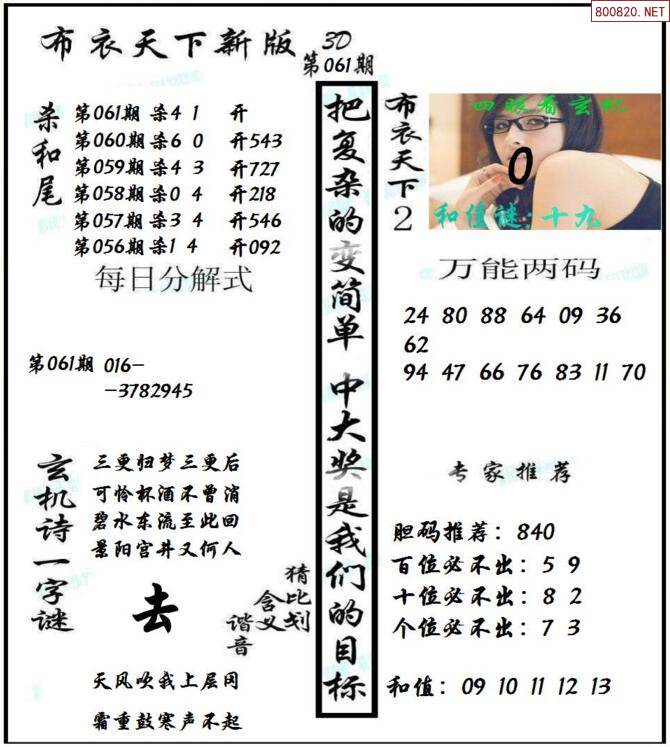 800820.NET
布衣天下新版 3D
第061期
杀和尾
第061期 杀4 1 开
第060期 杀6 0 开543
第059期 杀4 3 开727
第058期 杀0 4 开218
第057期 杀3 4 开546
第056期 杀1 4 开092
每日分解式
第061期 016-
-3782945
玄机诗一字谜
三更归梦三更后
可怜杯酒不曾消
碧水东流至此回
景阳宫井又何人
去
猜比划
含义
谐音
天风吹我上层冈
霜重鼓寒声不起
把复杂的变简单 中大奖是我们的目标
布衣天下2
四眼看玄机
0
和值谜:十九
万能两码
24 80 88 64 09 36
62
94 47 66 76 83 11 70
专家推荐
胆码推荐:840
百位必不出:5 9
十位必不出:8 2
个位必不出:7 3
和值:09 10 11 12 13